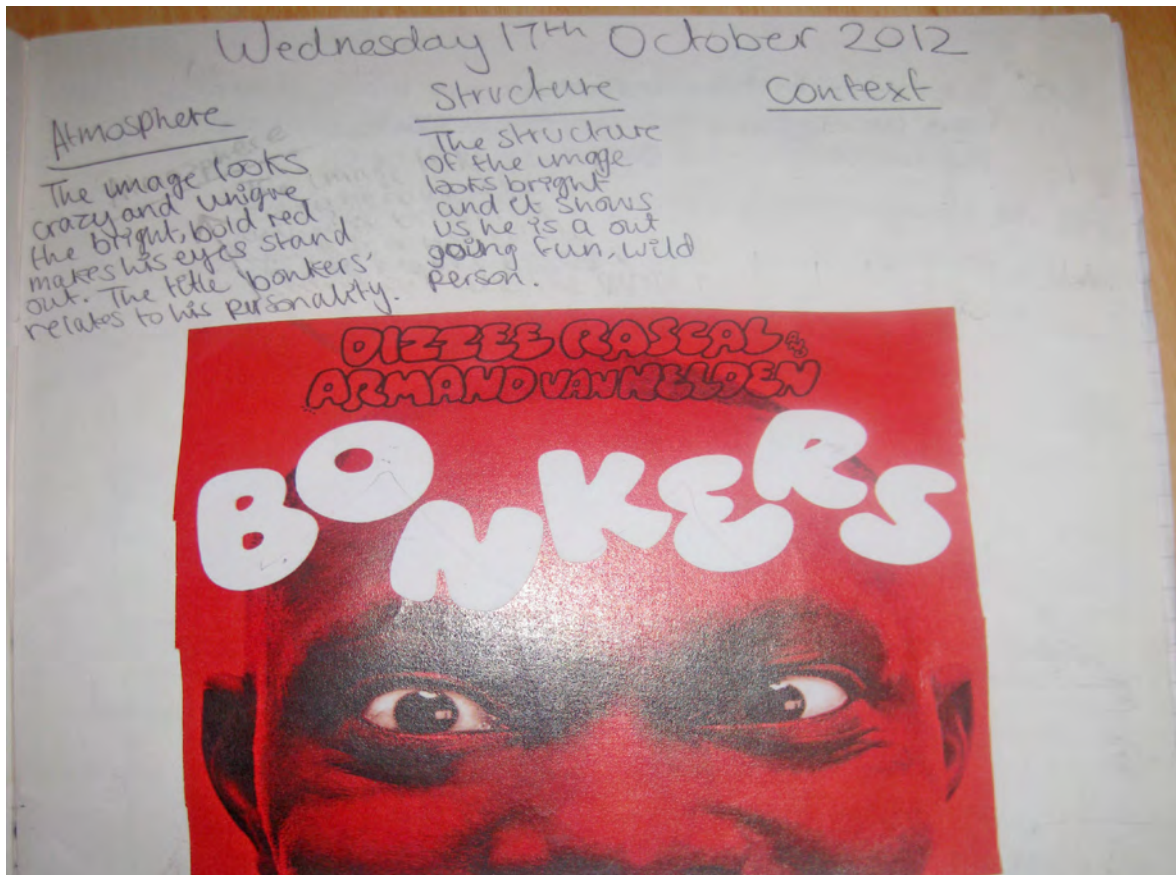 Wednesday 17th October 2012
Atmosphere
The image looks
crazy and unique
the bright, bold red
makes his eyes stand
out. The title 'bonkers'
relates to his personality.
Structure
The structure
of the image
looks bright
and it shows
us he is a out
going fun, wild
person.
Context
DIZZEE RASCAL AND
ARMAND VAN HELDEN
BONKERS